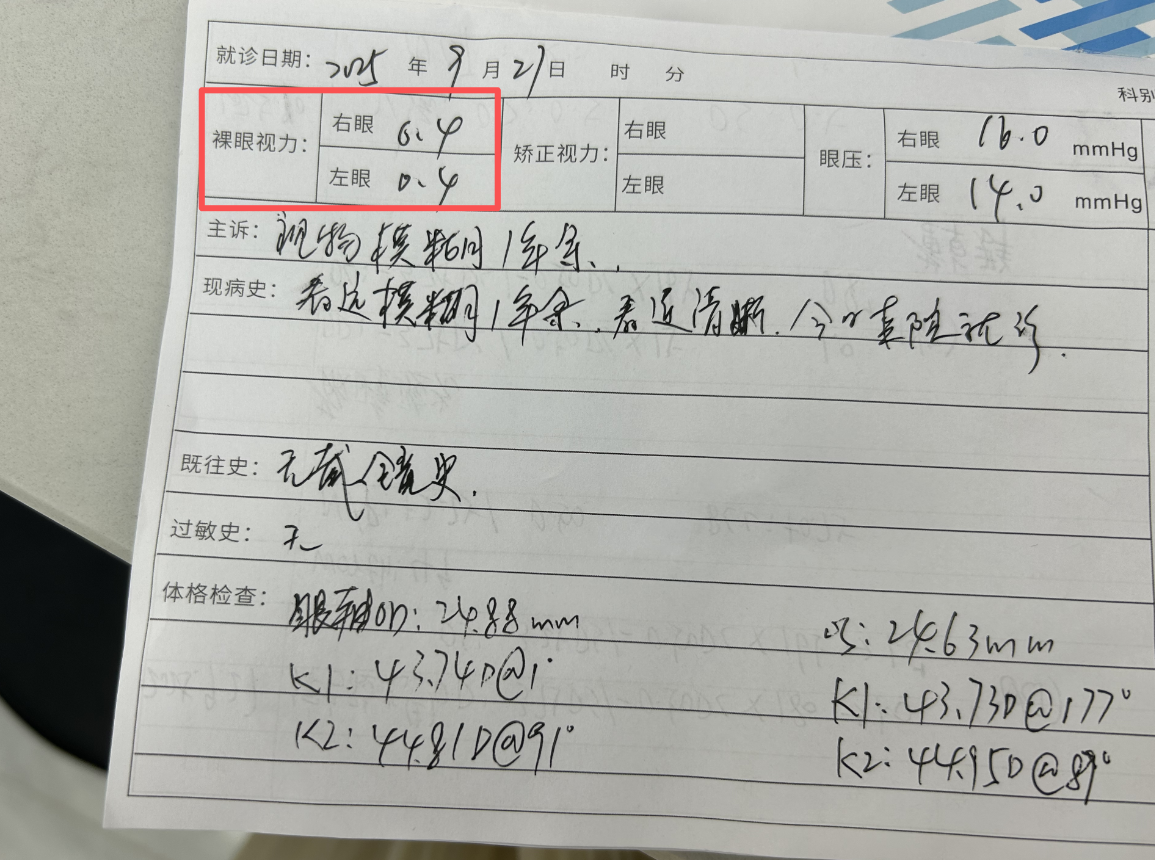 就诊日期：2025 年 9 月 27 日 时 分
科别
裸眼视力： 右眼 0.4 矫正视力： 右眼 眼压： 右眼 16.0 mmHg
左眼 0.4 左眼 左眼 14.0 mmHg
主诉：视物模糊1年余.
现病史：看远模糊1年余，看近清晰. 今来我院就诊.
既往史：无戴镜史.
过敏史：无
体格检查：眼轴OD：24.88mm OS：24.63mm
K1：43.74D@1° K1：43.73D@177°
K2：44.81D@91° K2：44.95D@87°